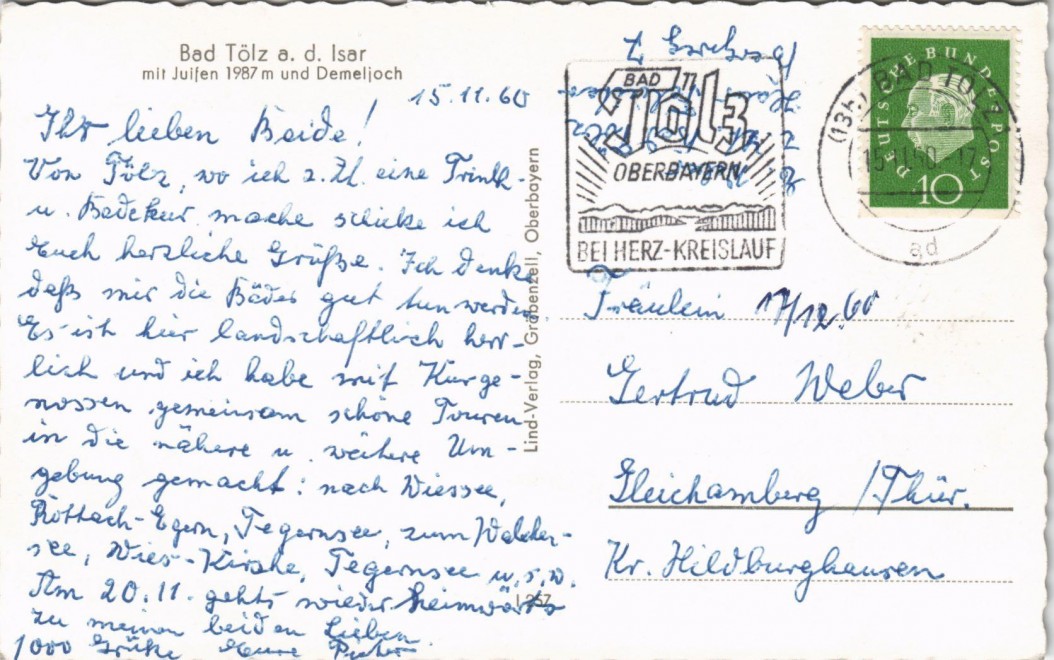 Bad Tölz a. d. Isar
mit Juifen 1987 m und Demeljoch
15.11.60
Ihr lieben Beide!
Von Tölz, wo ich z. Zt. eine Trink-
u. Badekur mache schicke ich
Euch herzliche Grüße. Ich denke
daß mir die Bäder gut tun werden.
Es ist hier landschaftlich herr-
lich und ich habe mit Kurge-
nossen gemeinsam schöne Touren
in die nähere u. weitere Um-
gebung gemacht: nach Wiessee,
Rottach-Egern, Tegernsee, zum Walchen-
see, Wies-Kirche, Tegernsee u.s.w.
Am 20.11. gehts wieder heimwärts
zu meinen beiden Lieben.
1000 Grüße Eure
Lind-Verlag, Gröbenzell, Oberbayern
L 257
BAD
Tölz
OBERBAYERN
BEI HERZ-KREISLAUF
(13b) BAD TÖLZ
15.11.60-17
ad
DEUTSCHE BUNDESPOST
10
Fräulein 17/12.60
Gertrud Weber
Gleichamberg /Thür.
Kr. Hildburghausen